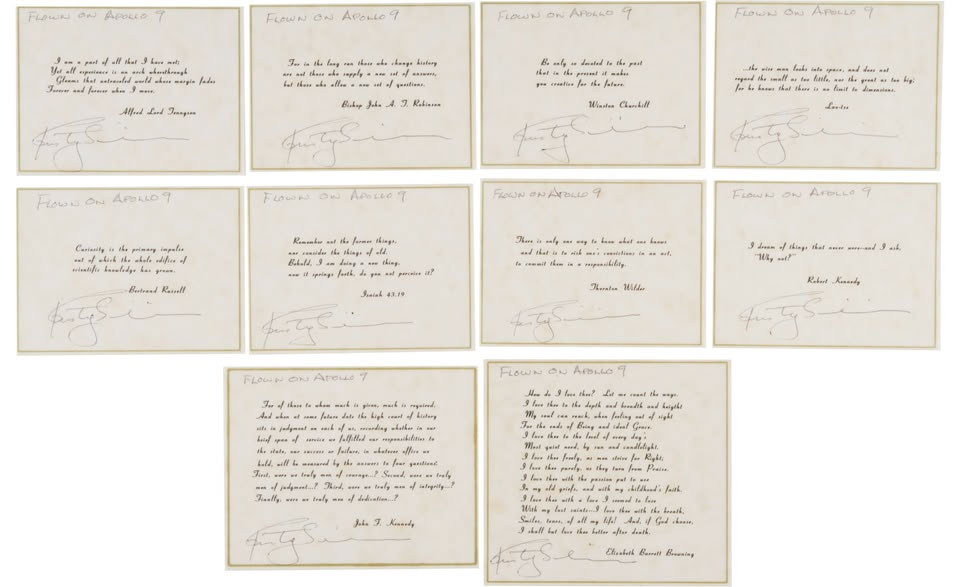 FLOWN ON APOLLO 9
I am a part of all that I have met;
Yet all experience is an arch wherethrough
Gleams that untraveled world whose margin fades
Forever and forever when I move.
Alfred Lord Tennyson
FLOWN ON APOLLO 9
For in the long run those who change history
are not those who supply a new set of answers,
but those who allow a new set of questions.
Bishop John A. T. Robinson
FLOWN ON APOLLO 9
Be only so devoted to the past
that in the present it makes
you creative for the future.
Winston Churchill
FLOWN ON APOLLO 9
...the wise man looks into space, and does not
regard the small as too little, nor the great as too big;
for he knows that there is no limit to dimensions.
Lao-tse
FLOWN ON APOLLO 9
Curiosity is the primary impulse
out of which the whole edifice of
scientific knowledge has grown.
Bertrand Russell
FLOWN ON APOLLO 9
Remember not the former things,
nor consider the things of old.
Behold, I am doing a new thing,
now it springs forth, do you not perceive it?
Isaiah 43.19
FLOWN ON APOLLO 9
There is only one way to know what one knows
and that is to risk one's convictions in an act,
to commit them in a responsibility.
Thornton Wilder
FLOWN ON APOLLO 9
I dream of things that never were—and I ask,
"Why not?"
Robert Kennedy
FLOWN ON APOLLO 9
For of those to whom much is given, much is required.
And when at some future date the high court of history
sits in judgment on each of us, recording whether in our
brief span of service we fulfilled our responsibilities to
the state, our success or failure, in whatever office we
hold, will be measured by the answers to four questions:
First, were we truly men of courage...? Second, were we truly
men of judgment...? Third, were we truly men of integrity...?
Finally, were we truly men of dedication...?
John F. Kennedy
FLOWN ON APOLLO 9
How do I love thee? Let me count the ways.
I love thee to the depth and breadth and height
My soul can reach, when feeling out of sight
For the ends of Being and ideal Grace.
I love thee to the level of every day's
Most quiet need, by sun and candlelight.
I love thee freely, as men strive for Right;
I love thee purely, as they turn from Praise.
I love thee with the passion put to use
In my old griefs, and with my childhood's faith.
I love thee with a love I seemed to lose
With my lost saints—I love thee with the breath,
Smiles, tears, of all my life! And, if God choose,
I shall but love thee better after death.
Elizabeth Barrett Browning